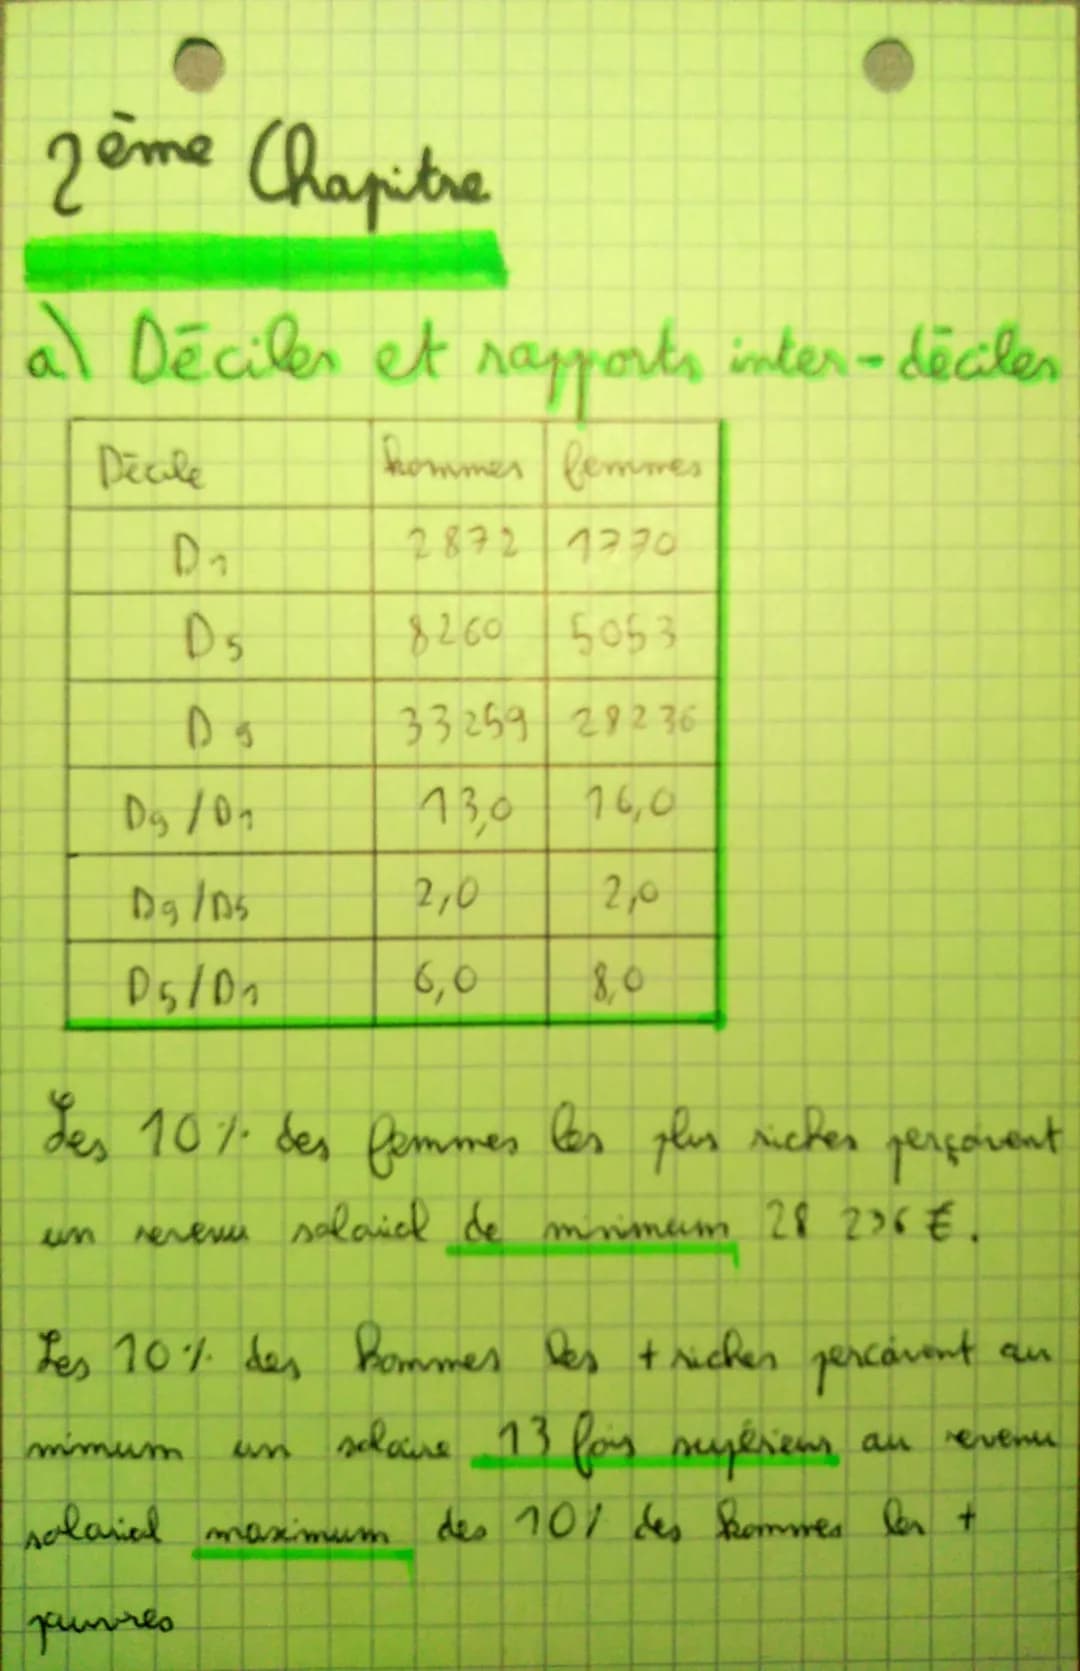 2ème Chapitre
a) Déciles et rapports inter-déciles
Décile hommes femmes
D1 2872 1770
D5 8260 5053
D9 33259 28236
D9/D1 13,0 16,0
D9/D5 2,0 2,0
D5/D1 6,0 8,0
Les 10% des femmes les plus riches perçoivent
un revenu salarial de minimum 28 236 €.
Les 10% des hommes les + riches percoivent au
mimum un salaire 13 fois supérieur au revenu
salarial maximum des 10% des hommes les +
pauvres